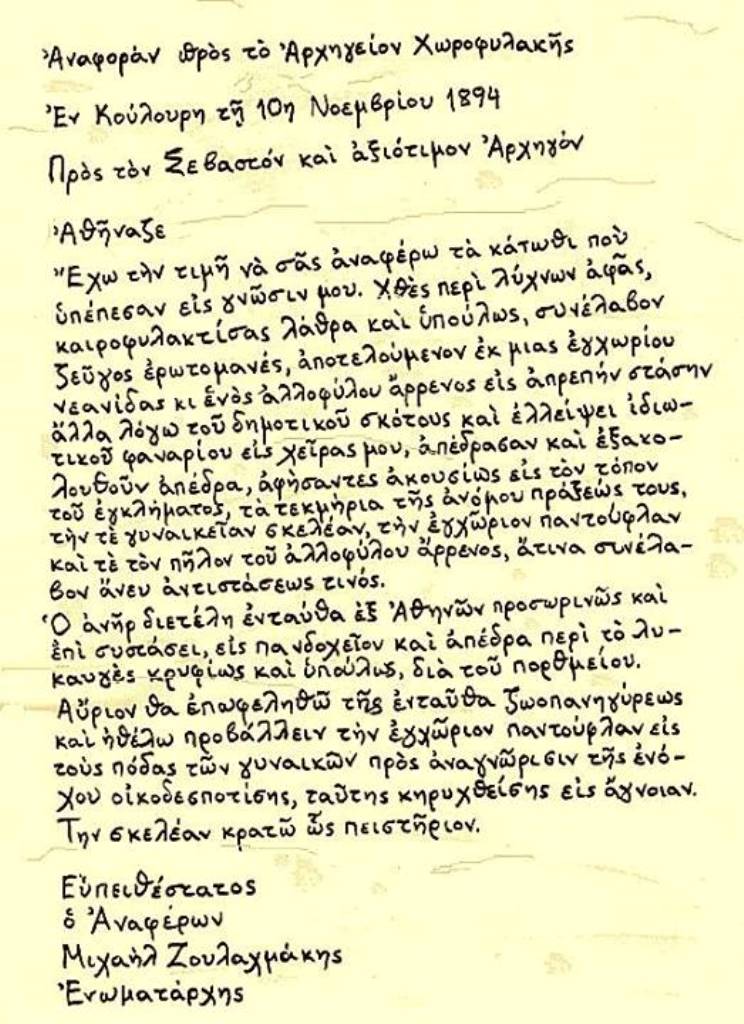 Ἀναφορὰν πρὸς τὸ Ἀρχηγεῖον Χωροφυλακῆς
Ἐν Κούλουρη τῇ 10η Νοεμβρίου 1894
Πρὸς τὸν Σεβαστόν καὶ ἀξιότιμον Ἀρχηγὸν
Ἀθῆναζε
Ἔχω τὴν τιμῆ νὰ σᾶς ἀναφέρω τὰ κάτωθι ποὺ
ὑπέπεσαν εἰς γνῶσιν μου. Χθὲς περὶ λύχνων ἀφᾶς,
καιροφυλακτίσας λάθρα καὶ ὑπούλως, συνέλαβον
ζεῦγος ἐρωτομανές, ἀποτελούμενον ἐκ μιας ἐγχωρίου
νεανίδας κι ἑνὸς ἀλλοφύλου ἄρρενος εἰς ἀπρεπήν στάσην
ἄλλα λόγω τοῦ δημοτικοῦ σκότους καὶ ἐλλείψει ἰδιω-
τικοῦ φαναρίου εἰς χεῖρας μου, ἀπέδρασαν καὶ ἐξακο-
λουθοῦν ἀπέδρα, ἀφήσαντες ἀκουσίως εἰς τὸν τόπον
τοῦ ἐγκλήματος, τὰ τεκμήρια τῆς ἀνόμου πράξεώς τους,
τὴν τὲ γυναικεῖαν σκελέαν, τὴν ἐγχώριον παντούφλαν
καὶ τὲ τὸν πῆλον τοῦ ἀλλοφύλου ἄρρενος, ἅτινα συνέλα-
βον ἄνευ ἀντιστάσεως τινός.
Ὁ ἀνὴρ διετέλη ἐνταύθα ἐξ Ἀθηνῶν προσωρινῶς καὶ
ἐπὶ συστάσει, εἰς πανδοχεῖον καὶ ἀπέδρα περὶ τὸ λυ-
καυγὲς κρυφίως καὶ ὑπούλως, διὰ τοῦ πορθμείου.
Αὔριον θα ἐπωφεληθῶ τῆς ἐνταῦθα ζωοπανηγύρεως
καὶ ἠθέλω προβάλλειν τὴν ἐγχώριον παντούφλαν εἰς
τοὺς πόδας τῶν γυναικῶν πρὸς ἀναγνώρισιν τῆς ἐνό-
χου οἰκοδεσποτίσης, ταῦτης κηρυχθείσης εἰς ἄγνοιαν.
Την σκελέαν κρατῶ ὣς πειστῆριον.
Εὐπειθέστατος
ὁ Ἀναφέρων
Μιχαὴλ Ζουλαχμάκης
Ἐνωματάρχης